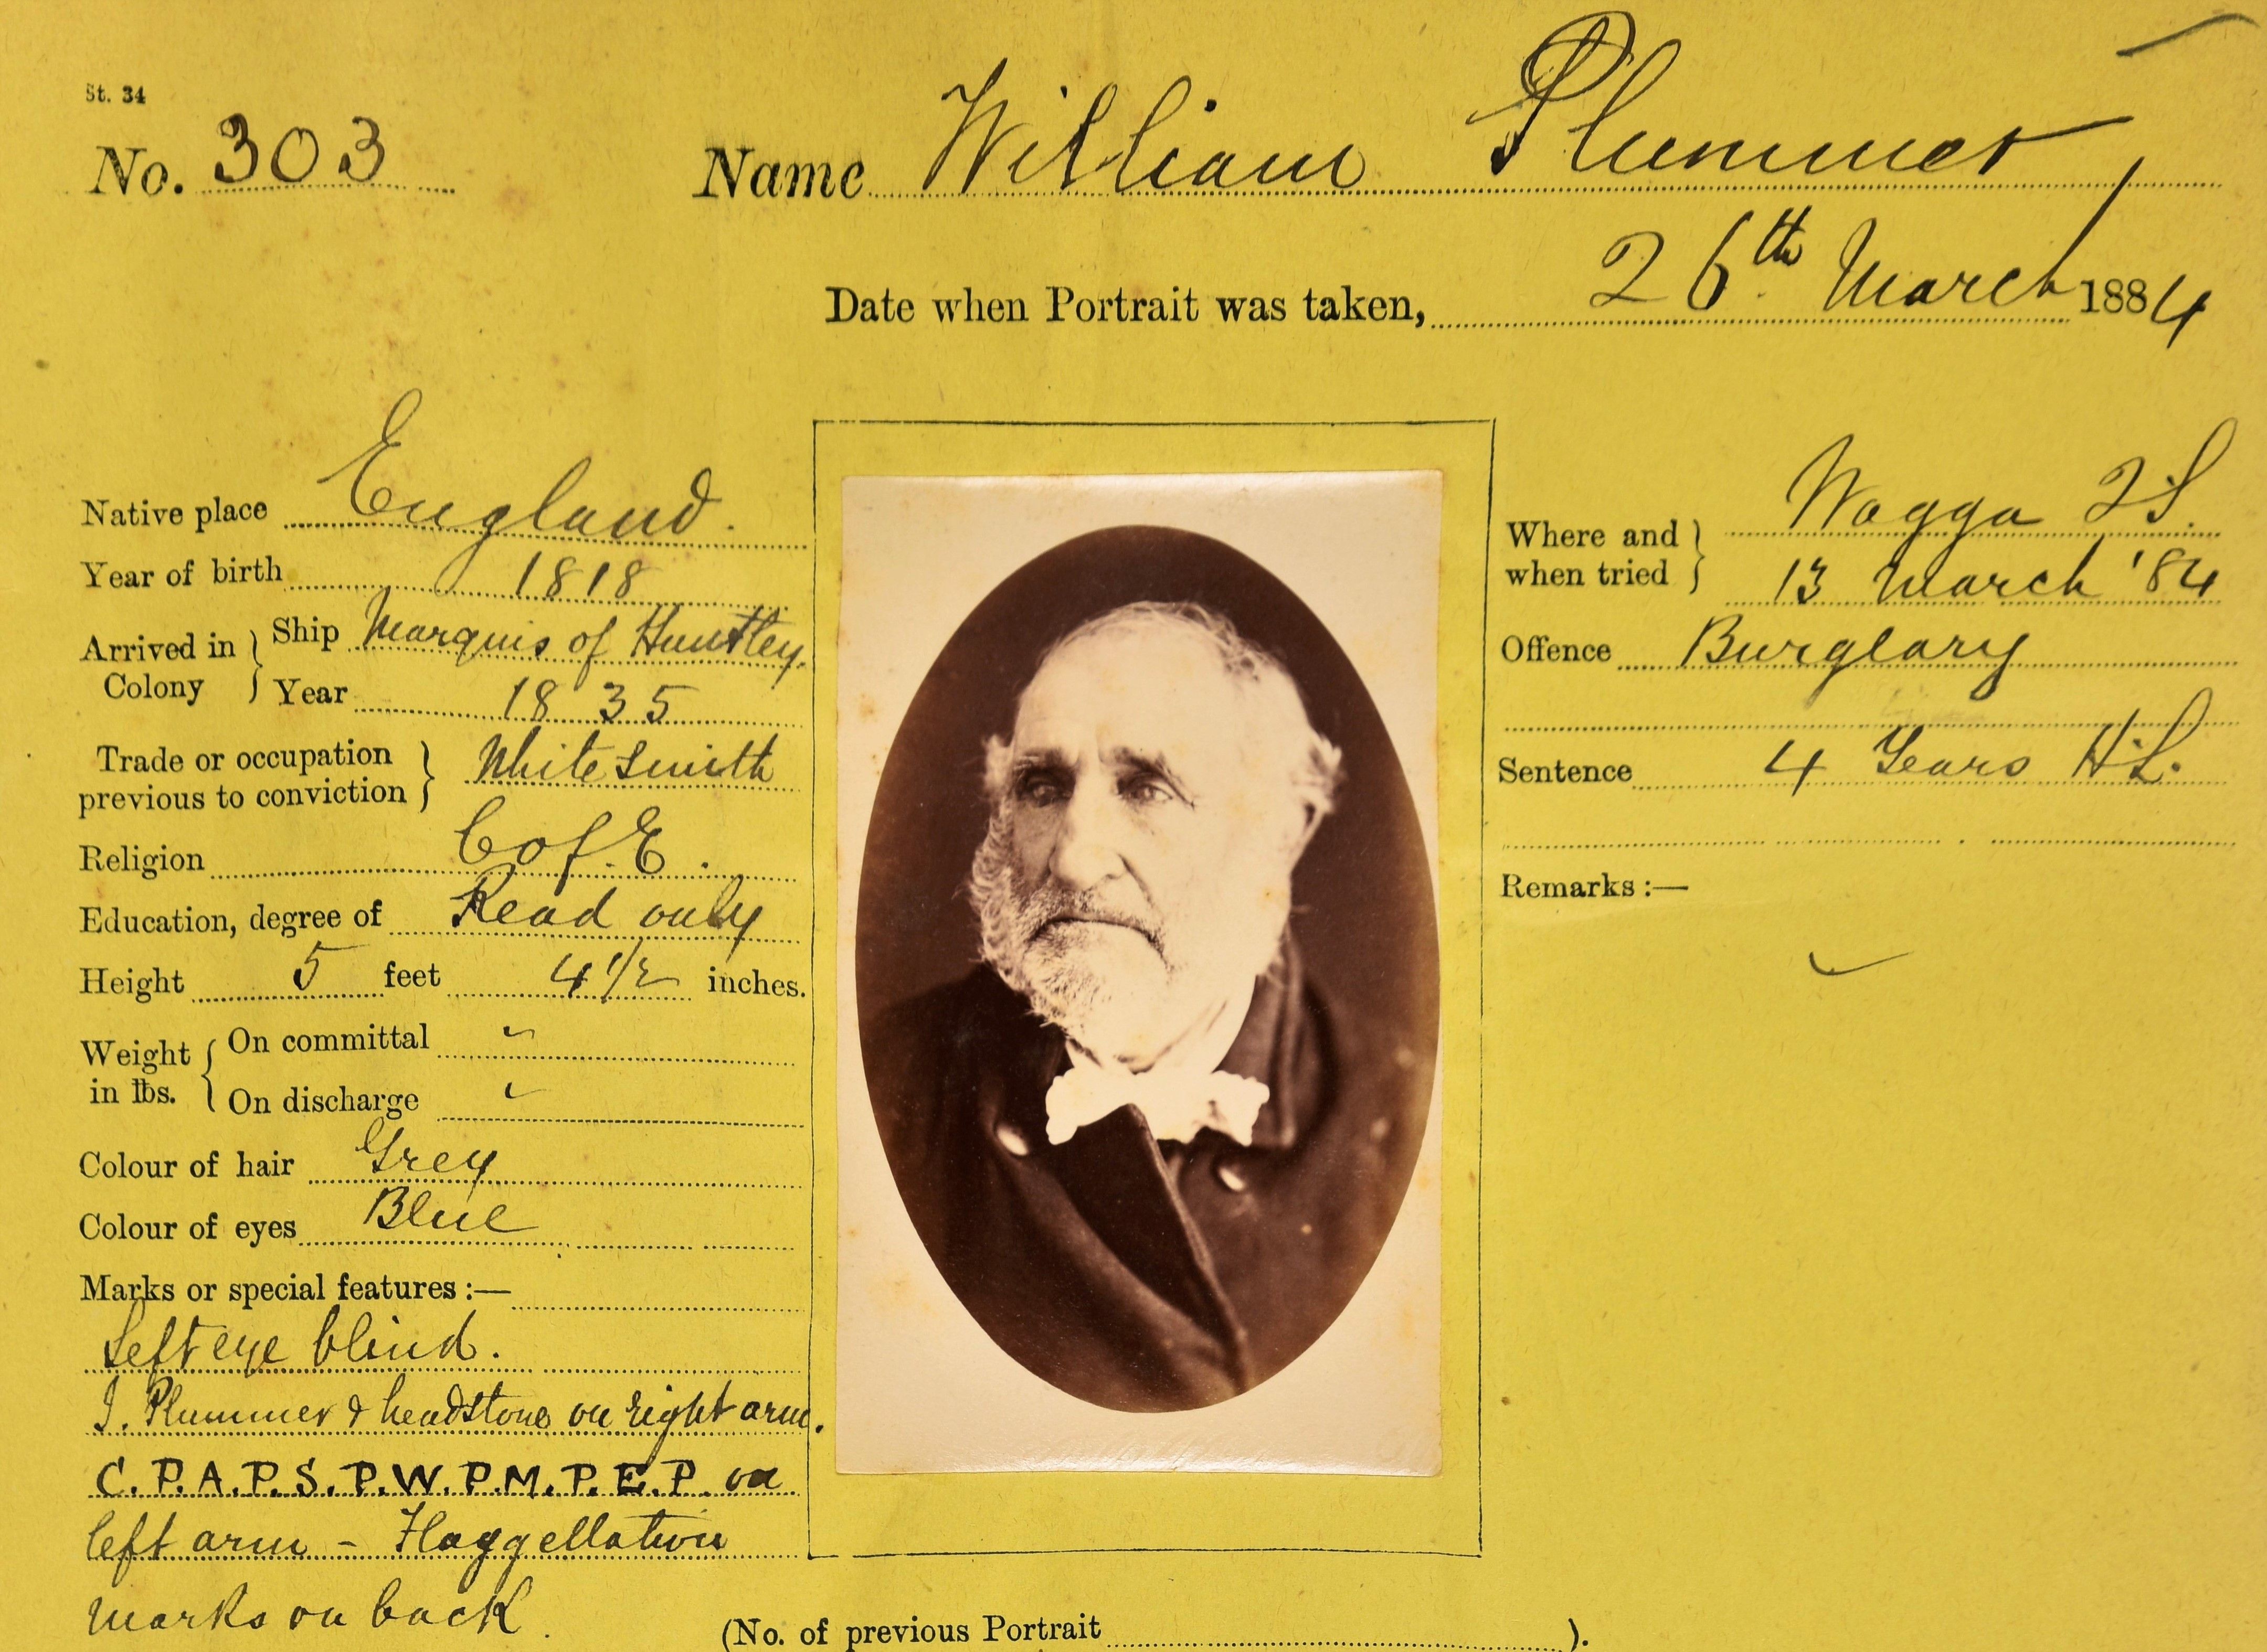 St. 34
No. 303
Name William Plummer
Date when Portrait was taken, 26th March 1884
Native place England.
Year of birth 1818
Arrived in Colony } Ship Marquis of Huntley.
Year 1835
Trade or occupation previous to conviction } Whitesmith
Religion C of E.
Education, degree of Read only
Height 5 feet 4 1/2 inches.
Weight in lbs. { On committal "
On discharge "
Colour of hair Grey
Colour of eyes Blue
Marks or special features :—
Left eye blind.
J. Plummer & headstone on right arm.
C.P.A.P.S.P.W.P.M.P.E.P. on
left arm - Flaggellation
marks on back.
Where and when tried } Wagga 2S.
13 March '84
Offence Burglary
Sentence 4 Years H.L.
Remarks :—
(No. of previous Portrait ).